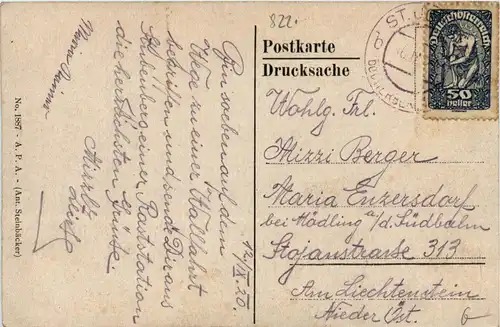 822.
Postkarte
Drucksache
ST.
Deutschösterreich
50
Heller
Wohlg. Frl.
Mizzi Berger
Maria Enzersdorf
bei Mödling a/d. Südbahn
Stojanstrasse 313
Am Liechtenstein
Nieder Öst.
12/IX.20.
Bin soeben auf dem
Wege zu einer Wallfahrt
begriffen und sende Dir aus
Stubenberg einer Raststation
die herzlichsten Grüsse.
No. 1887 - A. P. A. - (Ant. Steinbäcker)